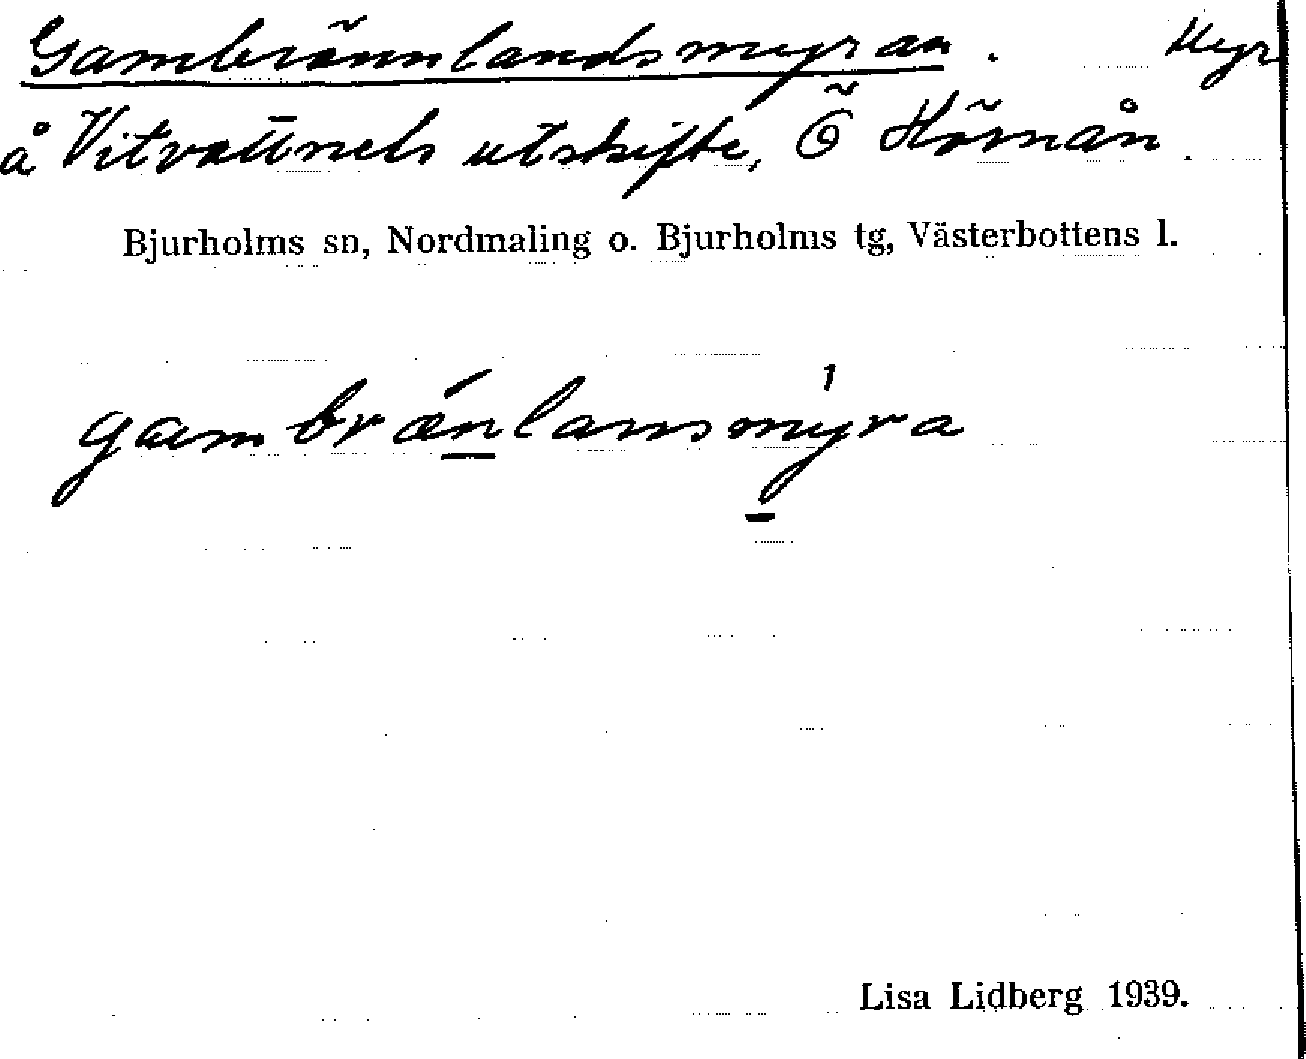 Gambrännlandsmyran. Myr
å Vitvattnets utskifte, Ö Hörnån.
Bjurholms sn, Nordmaling o. Bjurholms tg, Västerbottens l.
gambrǽnlansmýra
Lisa Lidberg 1939.